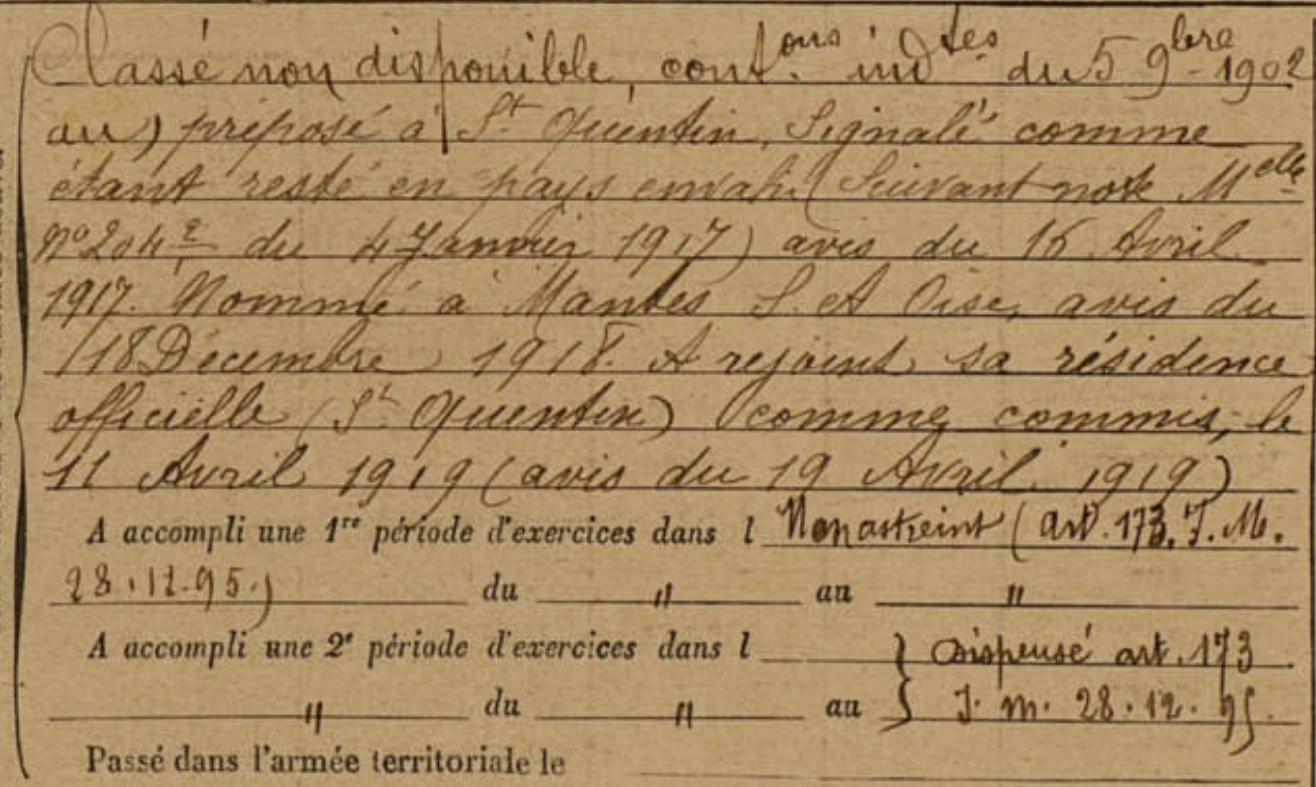 Classé non disponible, cont.ons indtes du 5 9bre 1902
au) préposé à St Quentin, Signalé comme
étant resté en pays envahi (Suivant note Melle
no 204 2 du 4 Janvier 1917) avis du 16 Avril
1917. Nommé à Mantes S. et Oise, avis du
18 Décembre 1918. A rejoint sa résidence
officielle (St Quentin) comme commis, le
11 Avril 1919 (avis du 19 Avril 1919)
A accompli une 1re période d'exercices dans l Non astreint (art. 173. I. M.
28.12.95.) du " au "
A accompli une 2e période d'exercices dans l } Dispensé art. 173
" du " au } I. m. 28.12.95.
Passé dans l'armée territoriale le